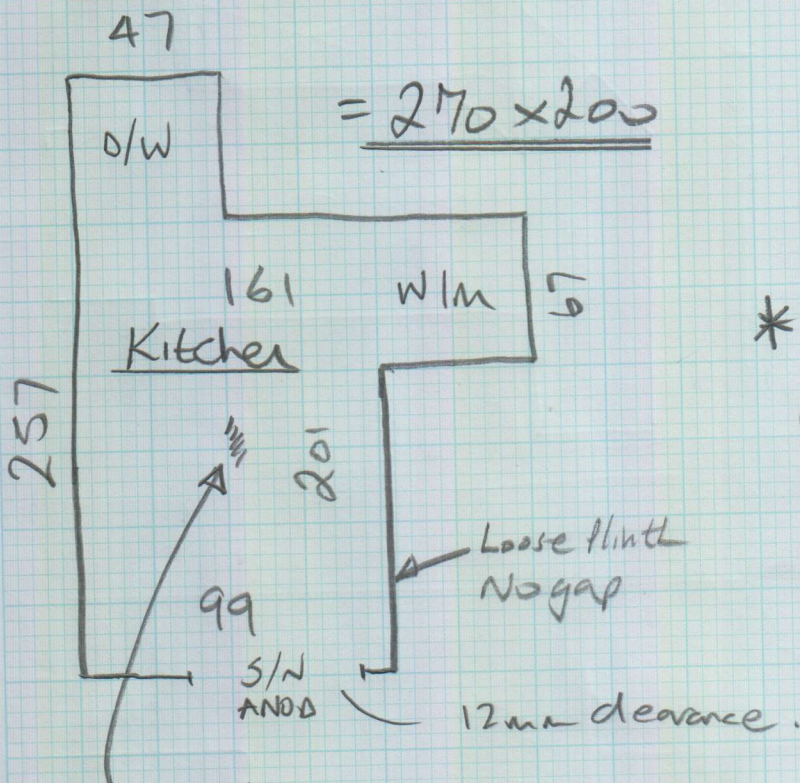 47
= 270 x 200
D/W
161
W/M
67
*
Kitchen
257
201
Loose Plinth
No gap
99
S/N
ANOD
12mm clearance.